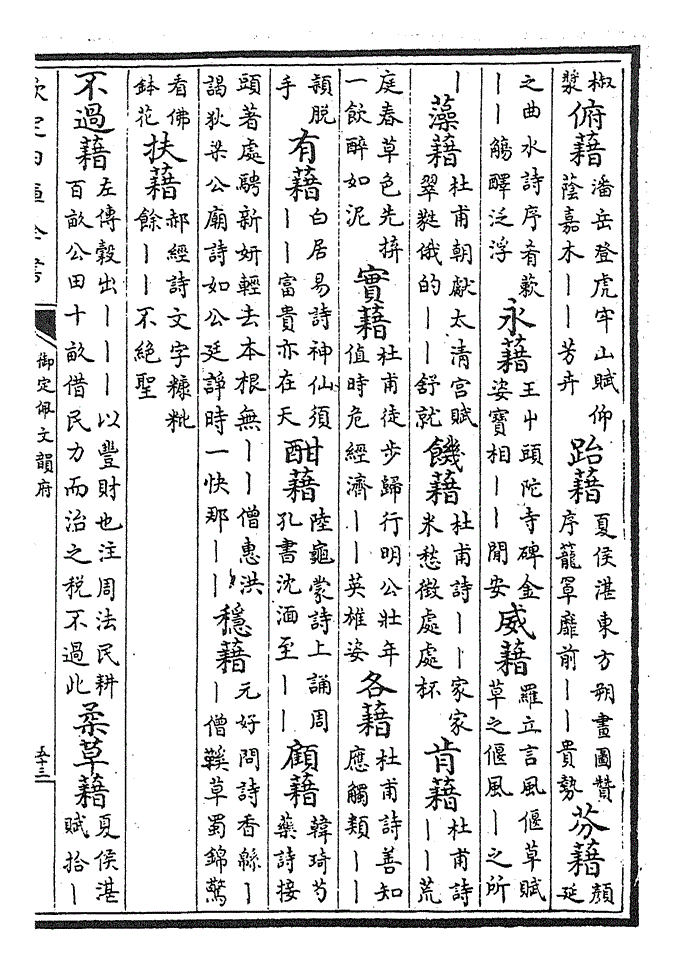 椒漿俯藉潘岳登虎牢山賦仰蔭嘉木丨丨芳卉跆藉夏侯湛東方朔畫圖贊序籠罩靡前丨丨貴勢芬藉顏延
之曲水詩序肴蔌丨丨觴醳泛浮永藉王屮頭陀寺碑金姿寶相丨丨閒安威藉羅立言風偃草賦草之偃風丨之所
丨藻藉杜甫朝獻太清宮賦翠蕤俄的丨丨舒就饑藉杜甫詩丨丨家家米愁徵處處杯肯藉杜甫詩丨丨荒
庭春草色先拚一飲醉如泥實藉杜甫徒步歸行明公壯年值時危經濟丨丨英雄姿各藉杜甫詩善知應觸類丨丨
穎脫手有藉白居易詩神仙須丨丨富貴亦在天酣藉陸龜蒙詩上誦周孔書沈湎至丨丨顧藉韓琦芍藥詩接
頭著處騁新妍輕去本根無丨丨僧惠洪謁狄梁公廟詩如公廷諍時一快那丨丨穩藉元好問詩香緜丨丨僧鞵草蜀錦驚
看佛鉢花扶藉郝經詩文字糠粃餘丨丨不絕聖
不過藉左傳穀出丨丨丨以豐財也注周法民耕百畝公田十畝借民力而治之稅不過此柔草藉夏侯湛賦拾丨
欽定四庫全書
御定佩文韻府
五十三